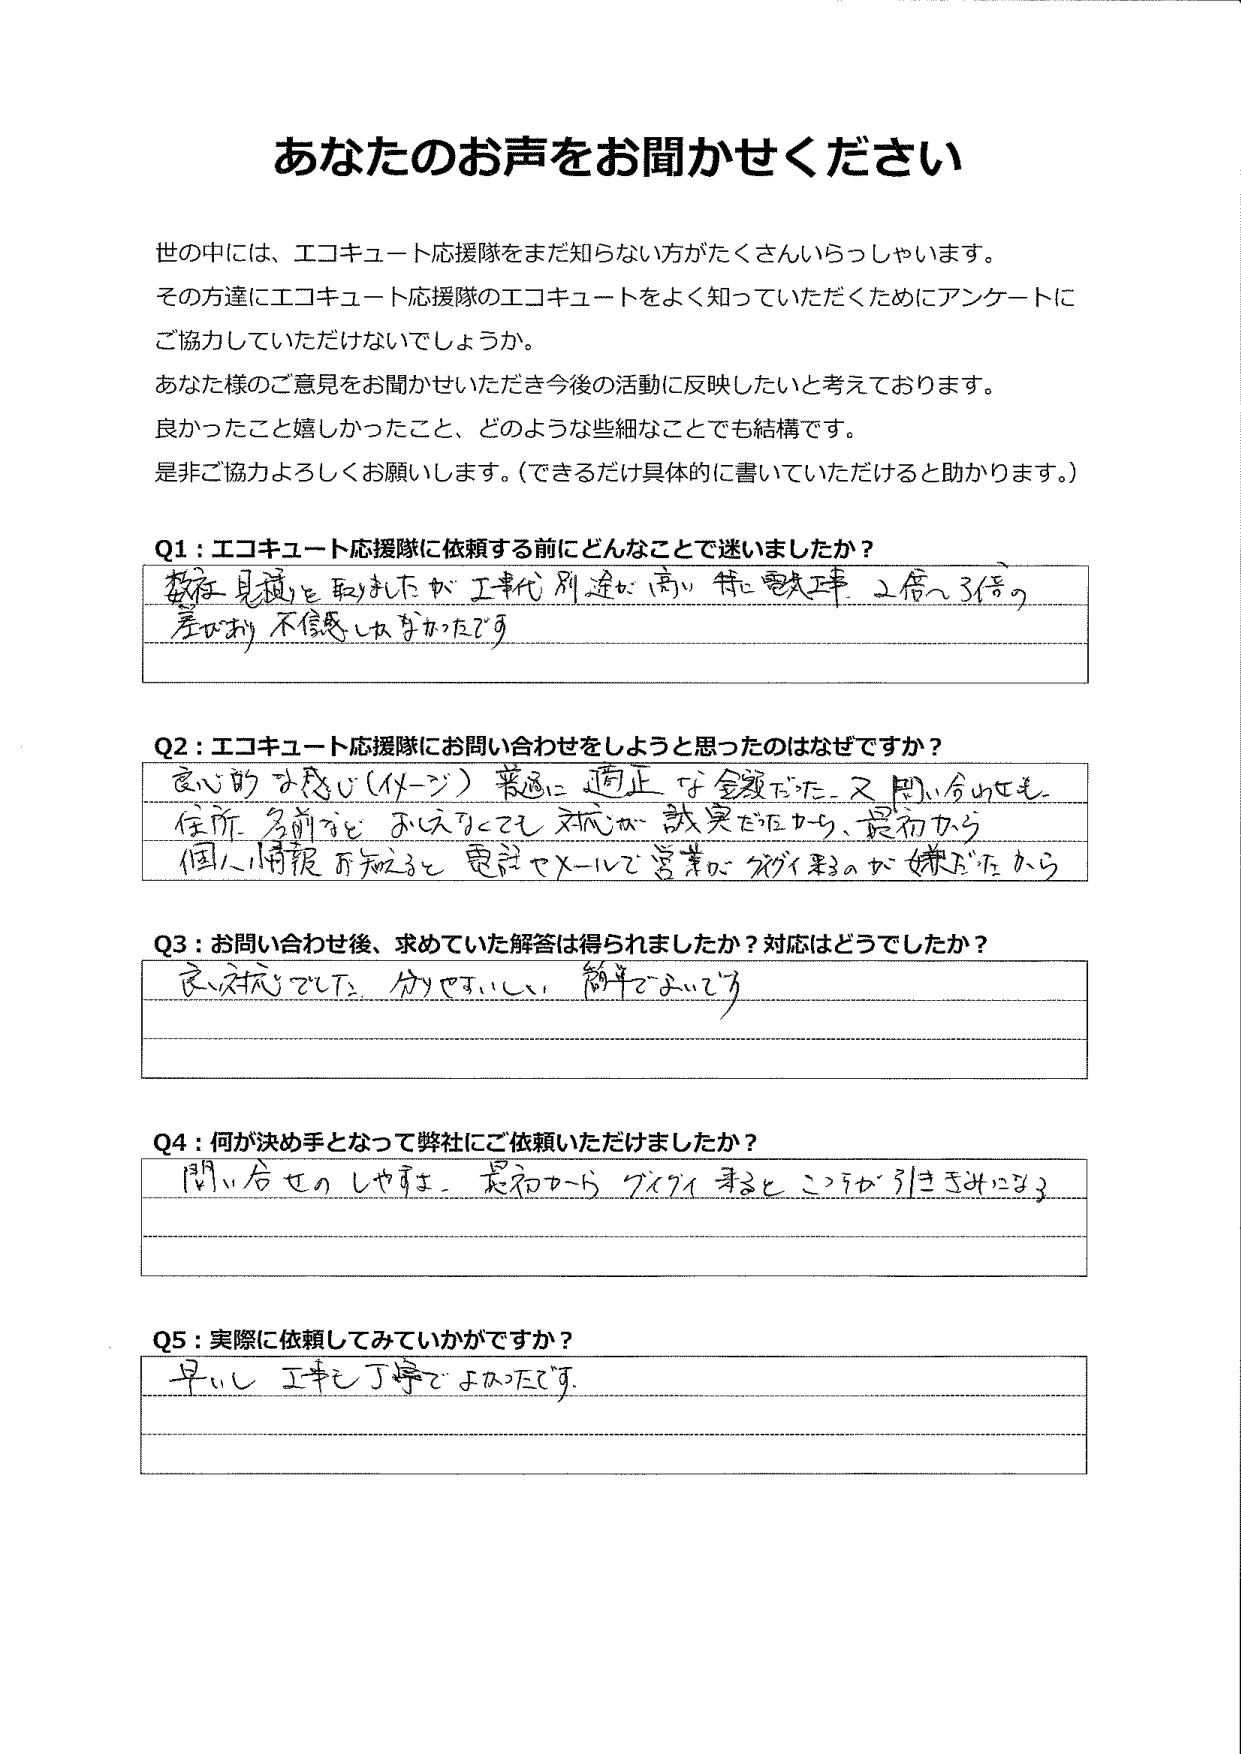 あなたのお声をお聞かせください
世の中には、エコキュート応援隊をまだ知らない方がたくさんいらっしゃいます。
その方達にエコキュート応援隊のエコキュートをよく知っていただくためにアンケートに
ご協力していただけないでしょうか。
あなた様のご意見をお聞かせいただき今後の活動に反映したいと考えております。
良かったこと嬉しかったこと、どのような些細なことでも結構です。
是非ご協力よろしくお願いします。（できるだけ具体的に書いていただけると助かります。）
Q1：エコキュート応援隊に依頼する前にどんなことで迷いましたか？
数社 見積りを 取りましたが 工事代 別途が 高い 特に 電気工事 2倍～3倍の
差があり 不信感しかなかったです
Q2：エコキュート応援隊にお問い合わせをしようと思ったのはなぜですか？
良心的な感じ（イメージ） 普通に 適正 な 金額だった 又 問い合わせも
住所 名前など おしえなくても 対応が 誠実だったから、最初から
個人情報 お知えると 電話やメールで 営業が グイグイ 来るのが 嫌だったから
Q3：お問い合わせ後、求めていた解答は得られましたか？対応はどうでしたか？
良い対応でした 分りやすいしい 簡単でよいです
Q4：何が決め手となって弊社にご依頼いただけましたか？
問い合せの しやすさ 最初から グイグイ 来ると こっちが 引きぎみになる
Q5：実際に依頼してみていかがですか？
早いし 工事も 丁寧で よかったです.